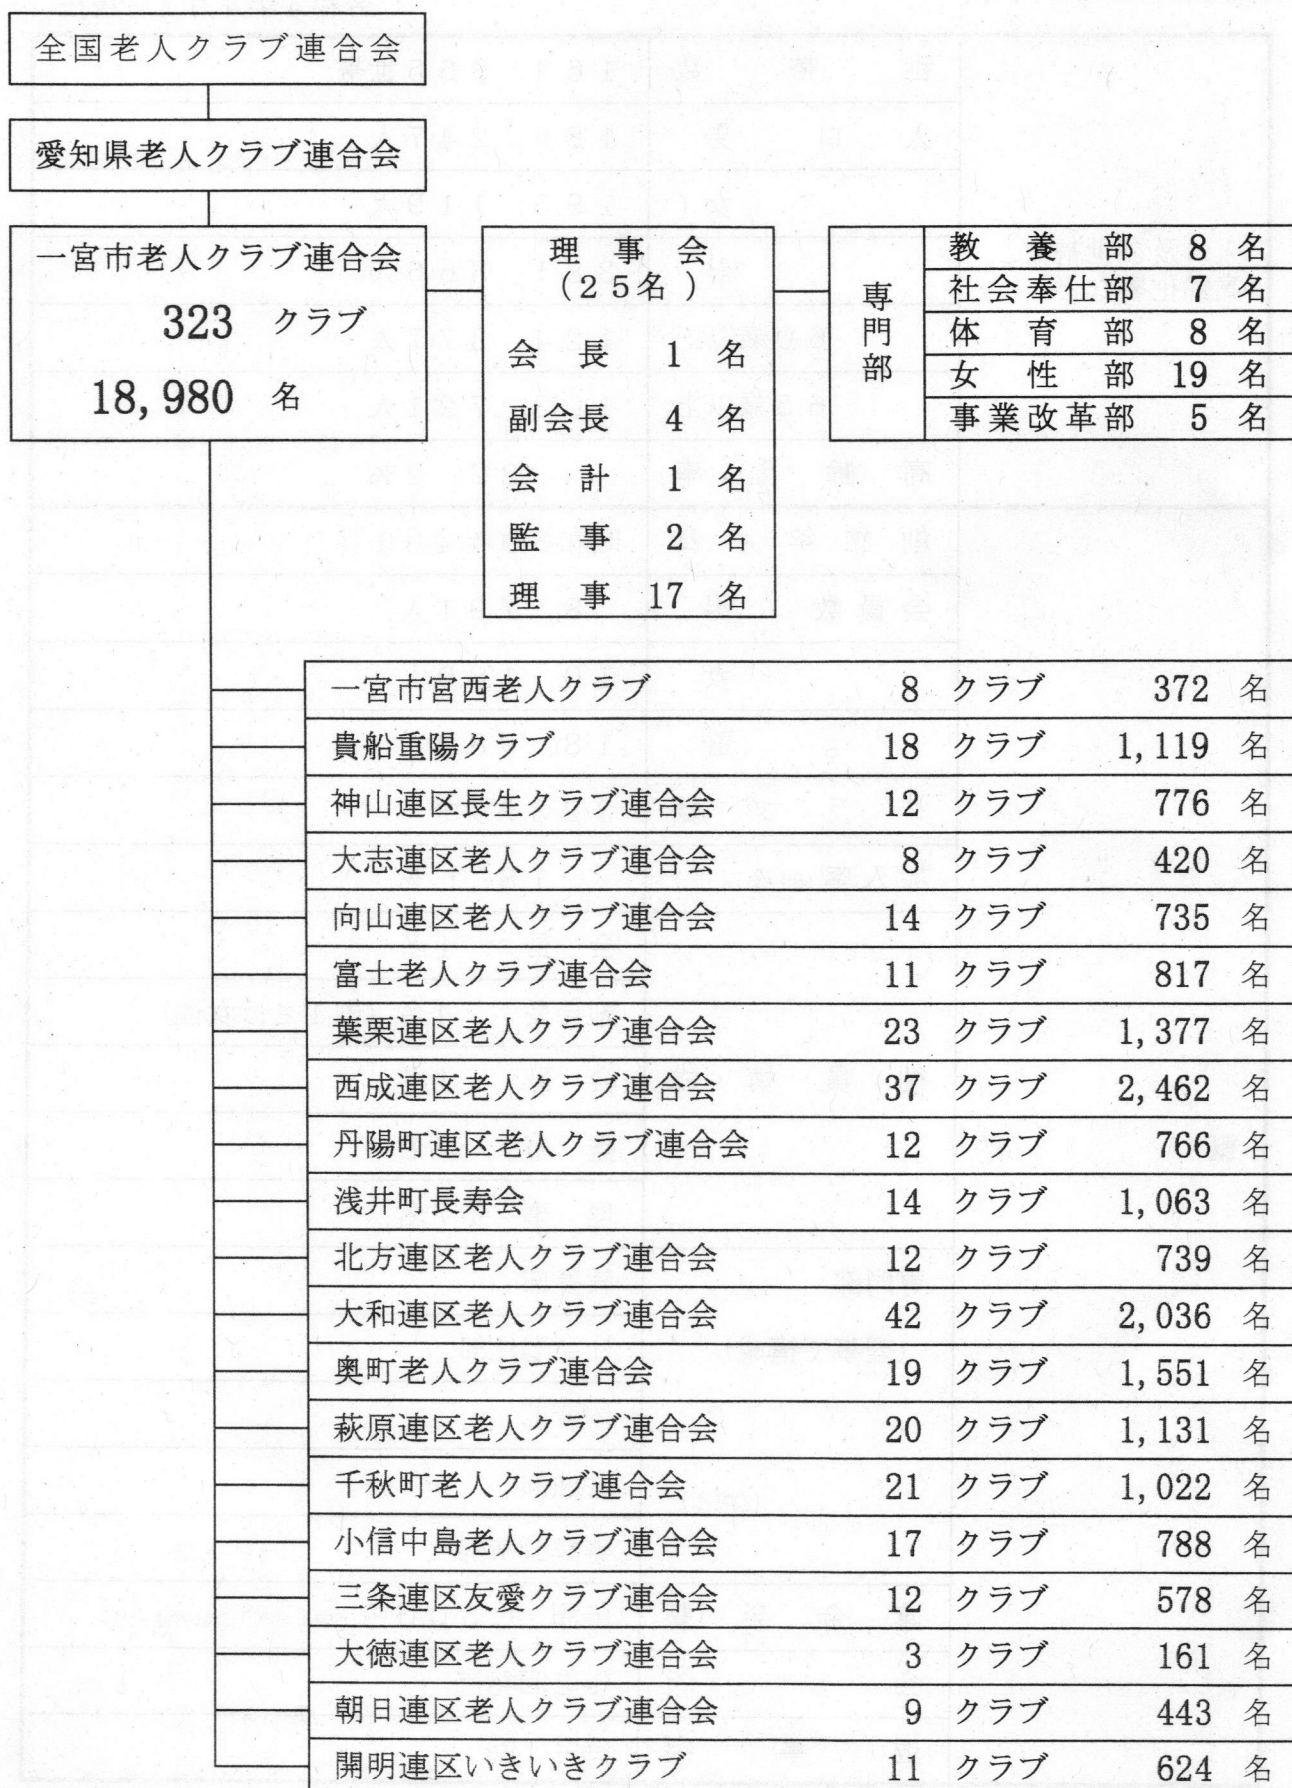 全国老人クラブ連合会
愛知県老人クラブ連合会
一宮市老人クラブ連合会
323 クラブ
18,980 名
理事会
(25名)
会長 1 名
副会長 4 名
会計 1 名
監事 2 名
理事 17 名
専門部
教養部 8 名
社会奉仕部 7 名
体育部 8 名
女性部 19 名
事業改革部 5 名
一宮市宮西老人クラブ 8 クラブ 372 名
貴船重陽クラブ 18 クラブ 1,119 名
神山連区長生クラブ連合会 12 クラブ 776 名
大志連区老人クラブ連合会 8 クラブ 420 名
向山連区老人クラブ連合会 14 クラブ 735 名
富士老人クラブ連合会 11 クラブ 817 名
葉栗連区老人クラブ連合会 23 クラブ 1,377 名
西成連区老人クラブ連合会 37 クラブ 2,462 名
丹陽町連区老人クラブ連合会 12 クラブ 766 名
浅井町長寿会 14 クラブ 1,063 名
北方連区老人クラブ連合会 12 クラブ 739 名
大和連区老人クラブ連合会 42 クラブ 2,036 名
奥町老人クラブ連合会 19 クラブ 1,551 名
萩原連区老人クラブ連合会 20 クラブ 1,131 名
千秋町老人クラブ連合会 21 クラブ 1,022 名
小信中島老人クラブ連合会 17 クラブ 788 名
三条連区友愛クラブ連合会 12 クラブ 578 名
大徳連区老人クラブ連合会 3 クラブ 161 名
朝日連区老人クラブ連合会 9 クラブ 443 名
開明連区いきいきクラブ 11 クラブ 624 名